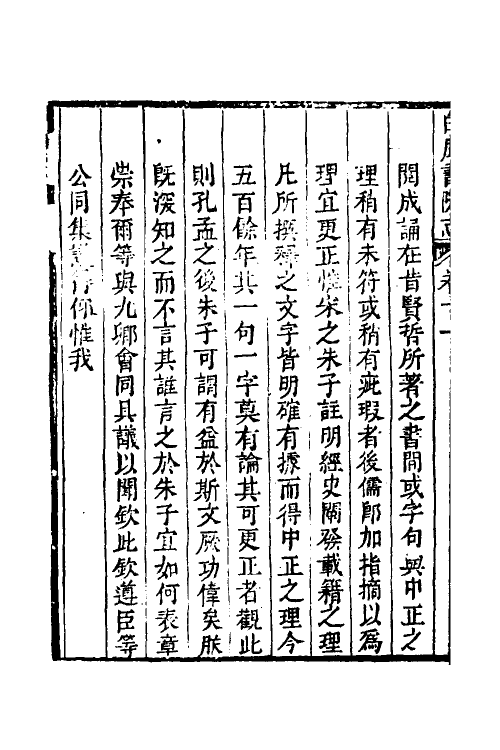 白鹿書院志 卷十一
閱成誦在昔賢哲所著之書間或字句與中正之
理稍有未符或稍有疵瑕者後儒卽加指摘以爲
理宜更正惟宋之朱子註明經史闡發載籍之理
凡所撰釋之文字皆明確有據而得中正之理今
五百餘年其一句一字莫有論其可更正者觀此
則孔孟之後朱子可謂有益於斯文厥功偉矣朕
既深知之而不言其誰言之於朱子宜如何表章
崇奉爾等與九卿會同具議以聞欽此欽遵臣等
公同集議得伏惟我